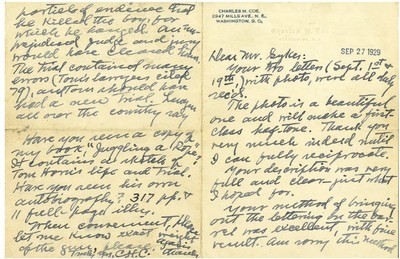 CHARLES H. COE,
2947 MILLS AVE., N. E.,
WASHINGTON, D. C.
SEP 27 1929
Dear Mr. Sykes:
Your two letters (Sept. 1st &
19th) with photo, were all duly
rec'd.
The photo is a beautiful
one and will make a first-
class half-tone. Thank you
very much indeed until
I can fully reciprocate.
Your description was very
full and clear—just what
I hoped for.
Your method of bringing
out the lettering on the bar-
rel was excellent, with fine
result. Am sorry this method
particle of evidence that
he killed the boy, for
which he hanged. An un-
prejudiced judge and jury
would have cleared him.
The trial contained many
errors (Tom's lawyers cited
79), and Tom should have
had a new trial.
all over the country say
Have you seen a copy of
my book "Juggling a Rope"?
It contains a sketch of
Tom Horn's life and trial.
Have you seen his own
autobiography? 317 pp. &
11 full-page illus.
When convenient, please
let me know exact weight
of the gun, please. Again thanks
Truly yrs, C.H.C.